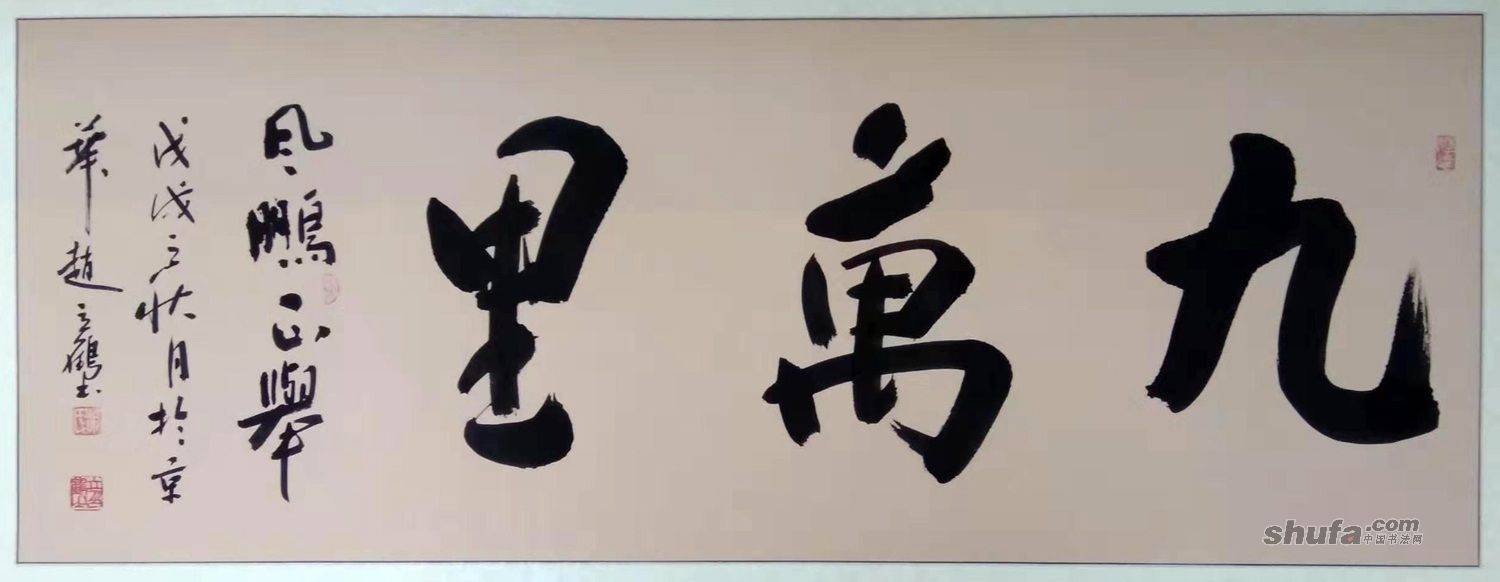 九萬里
风鹏正舉
戊戌之秋月於京
華赵立鶴书
shufa.com
中国书法网